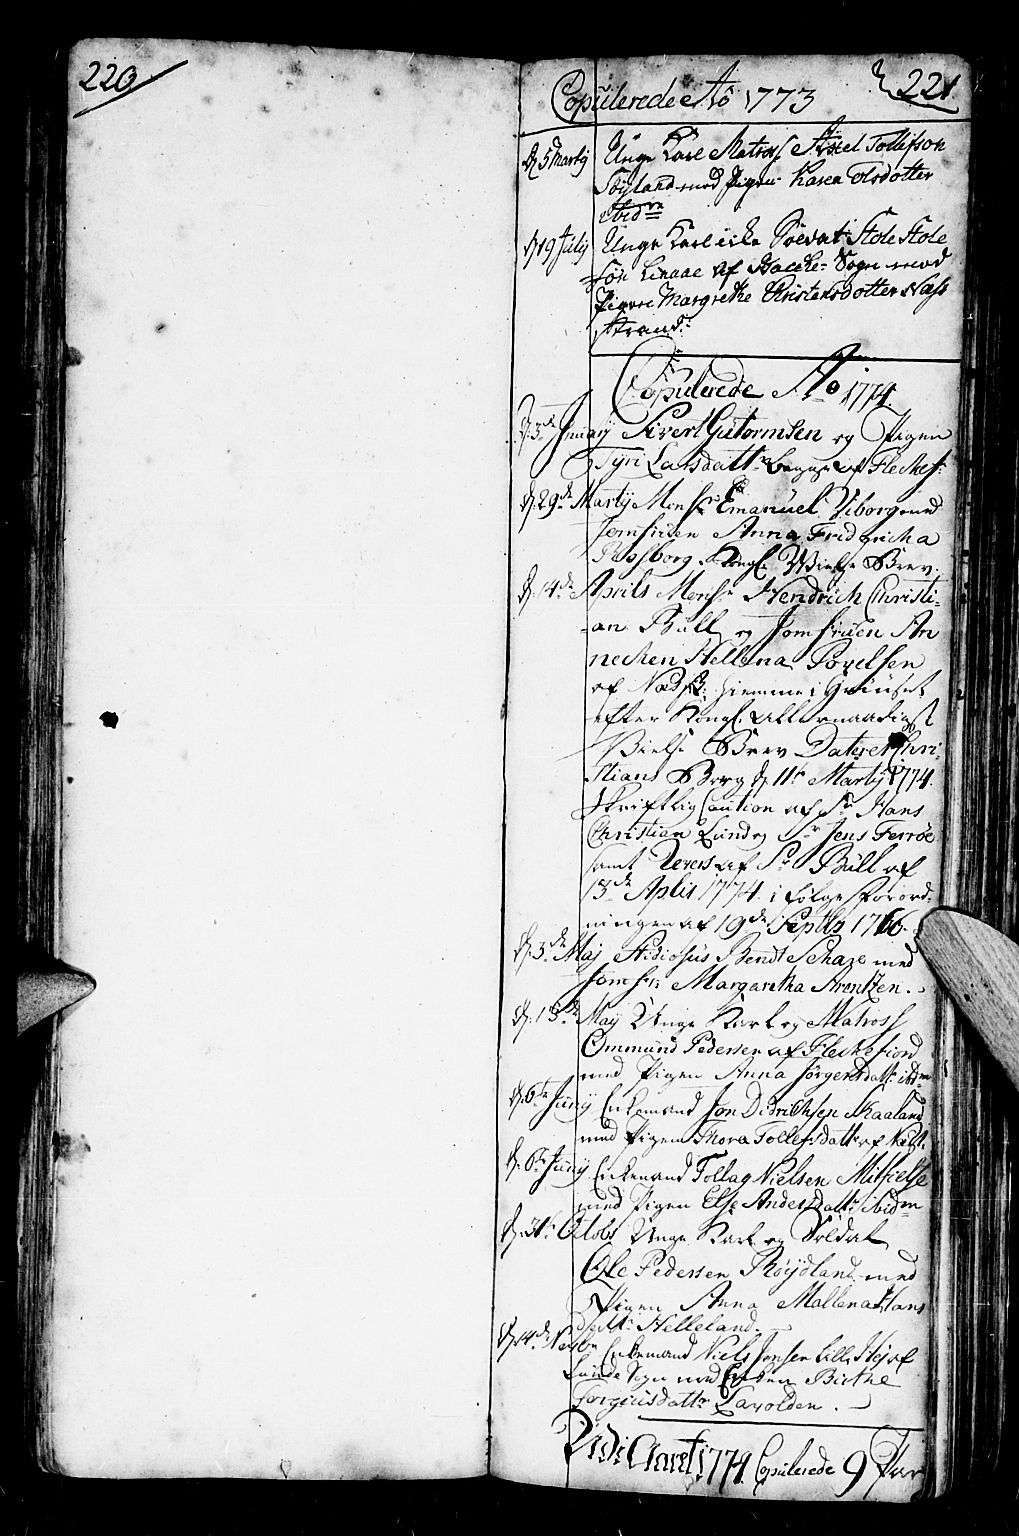 220
221
Copulerede Aō 1773
d. 5 Martij Unge Karl Matros Axel Tollefson
Søyland med Pigen Karen Olsdotter
ibidem
d. 19 July Unge Karl icke Soldat Stole Stole
søn Linaae af Backe Sogn med
Pigen Margrethe Christensdotter Næss
strand:
Copulerede Ao 1774.
d. 3de January Sivert Gutormsen og Pigen
Tyri Larsdattr begge af Fleckef:
d. 29de Martij Monsr Emanuel Viborg med
Jomfruen Anna Fridericha
Kongl. Vielse Brev.
d. 14de Aprils Monsr Hendrich Christi-
-an Bull og Jomfruen An
nechen Hellena Povelsen
af Næs hiemme i Huuset
efter Kongl. allernaadigst
Vielse Brev Dateret Chri-
stians Borg d. 11te Martij 1774.
Skriftlig Caution af Sr Hans
Christian Lund og Sr Jens Ferröe
samt Revers af Sr Bull af
13de Aplis 1774. i følge Forord-
ningen af 19de Septbr 1766.
d. 3de Maj Stidiosus Bendt Schaze med
Jomfru Margaretha Arentzen.
d. 15de May Unge Karl og Matross
Ommund Pedersen af Fleckefiord
med Pigen Anna Jörgensdattr ibdm
d. 6te Junij Enkemand Jon Didrichsen Skaaland
med Pigen Thora Tollefsdattr af
d. 6te Junij Enkemand Tollag Nielsen Mitfielse
med Pigen Else Andersdattr ibidm
d. 31te Octobr Unge Karl og Soldat
Ole Pedersen Röijdland med
Pigen Anna Mallena Hans
dattr Helleland.
d. 14de Novbr Enkemand Niels Jonsen Lille Hej af
Lunde Sogn med Enken Birthe
Torgiusdattr Lavolden.
Vidi Claret 1774. Copulerede 9 Par